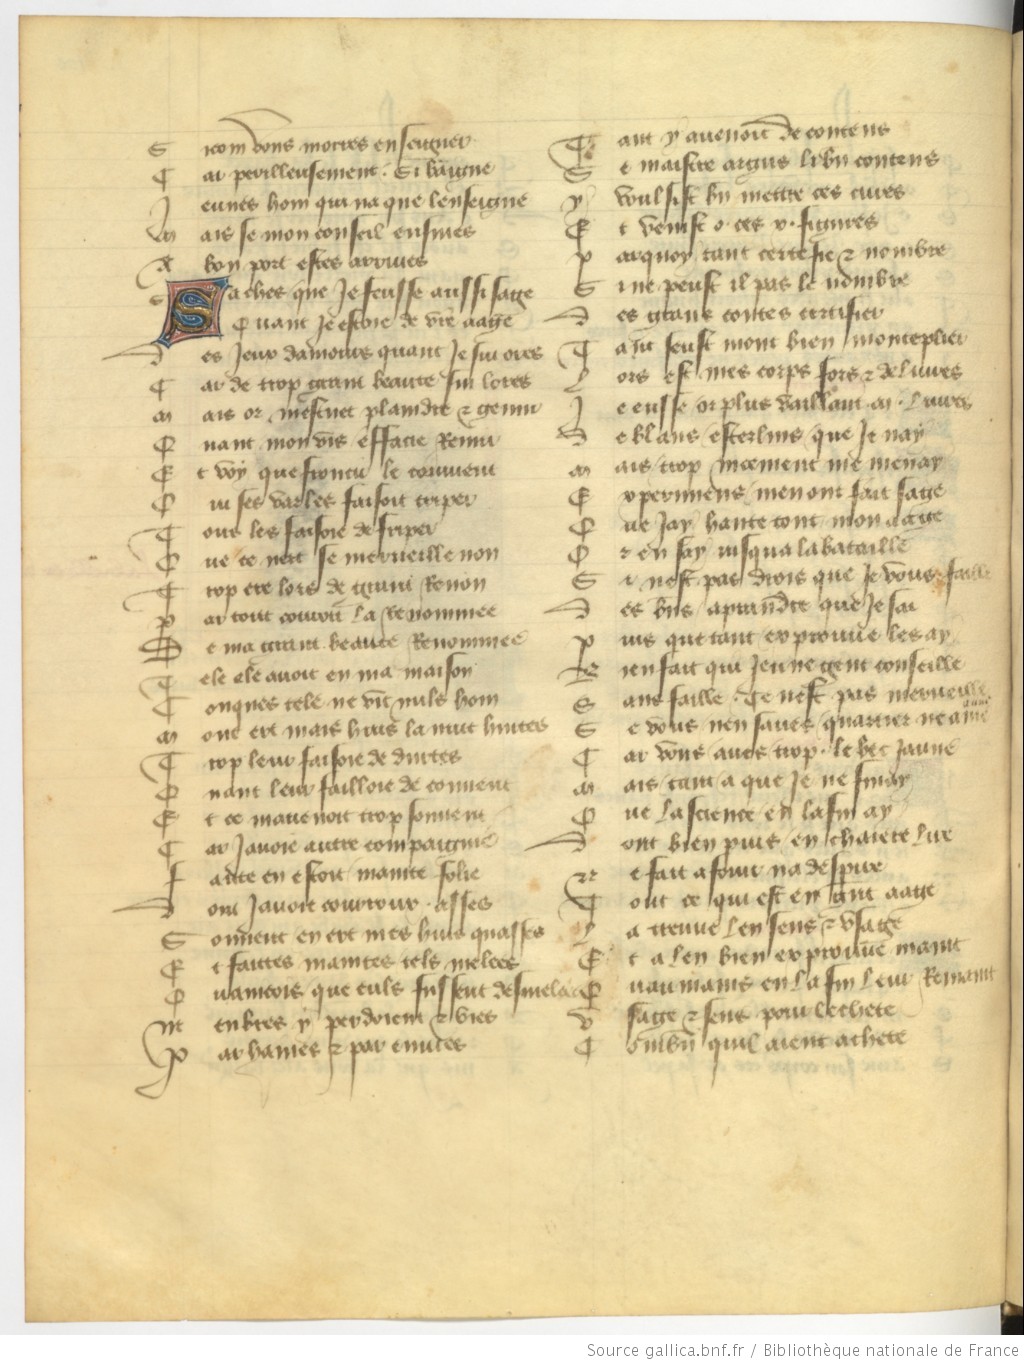 S icom dons mortes enseigner
C ar perilleusement si baigne
J eunes hom qui na que lenseigne
M ais se mon conseil ensuies
A bon port estes arrives
S aches que se feusse aussi sage
Quant Je estoie de vre aage
D es Jeux damours quant Je sui ores
C ar de trop grant beaute fui lores
M ais or mesteut plaindre et gemir
Q uant mon vis efface Remir
E t voy que froncir le convient
Q ui ses varles faisoit triper
T ous les faisoie defriper
Q ue ce nert se merveille non
T rop ere lors de grant Renon
P ar tout couroit La Renommee
D e ma grant beaute Renommee
T ele ele avoit en ma maison
C onques tele ne vit nuls hom
M out ert mais huis la nuit hurtes
T rop leur faisoie de durtes
Q uant leur failloie de convent
E t ce mavenoit trop souvent
C ar Javoie autre compaignie
F aicte en estoit mainte folie
D ont Javoie courroux asses
S ouvent en ert mes huis quasses
E t faittes maintes tels melees
Q uaincois que culs fussent desmelees
M enbres y perdoient et vies
P ar haines et par envies
T ant y avenoit de contens
S e maistre argus li bn contens
Y voulsist bn mettre ces cures
E t venist o ces x figures
P arquoy tout certefie et nombre
S i ne peust il pas le nombre
D es grans contes certifier
T ant seust mont bien monteplier
L ors est mes corps fors et delivres
J e eusse or plus vaillant m livres
D e blans esterlins que Je nay
M ais trop nicement me menay
E xperimens men ont fait sage
Q ue Jay hante tout mon aage
Q r en say jusqua la bataille
S i nest pas drois que Je vous faille
D es bns aprandre que Je sai
P uis que tant exprouve les ay
B ien fait qui Jeune gent conseille
S ans faille Ce nest pas merveille
S e vous nen saves quartier ne aune
C ar vous aves trop le bec Jaune
M ais tant a que Je ne finay
Q ue La science en la fin ay
D ont bien puis en chaiere lire
N e fait a fouir na despire
T out ce qui est en grant aage
L a treuve Len sens et usage
E t a Len bien exprouve maint
Q uau mains en La fin leur Remaint
U sage et sens pour Le chete
C ombn quil aient achete